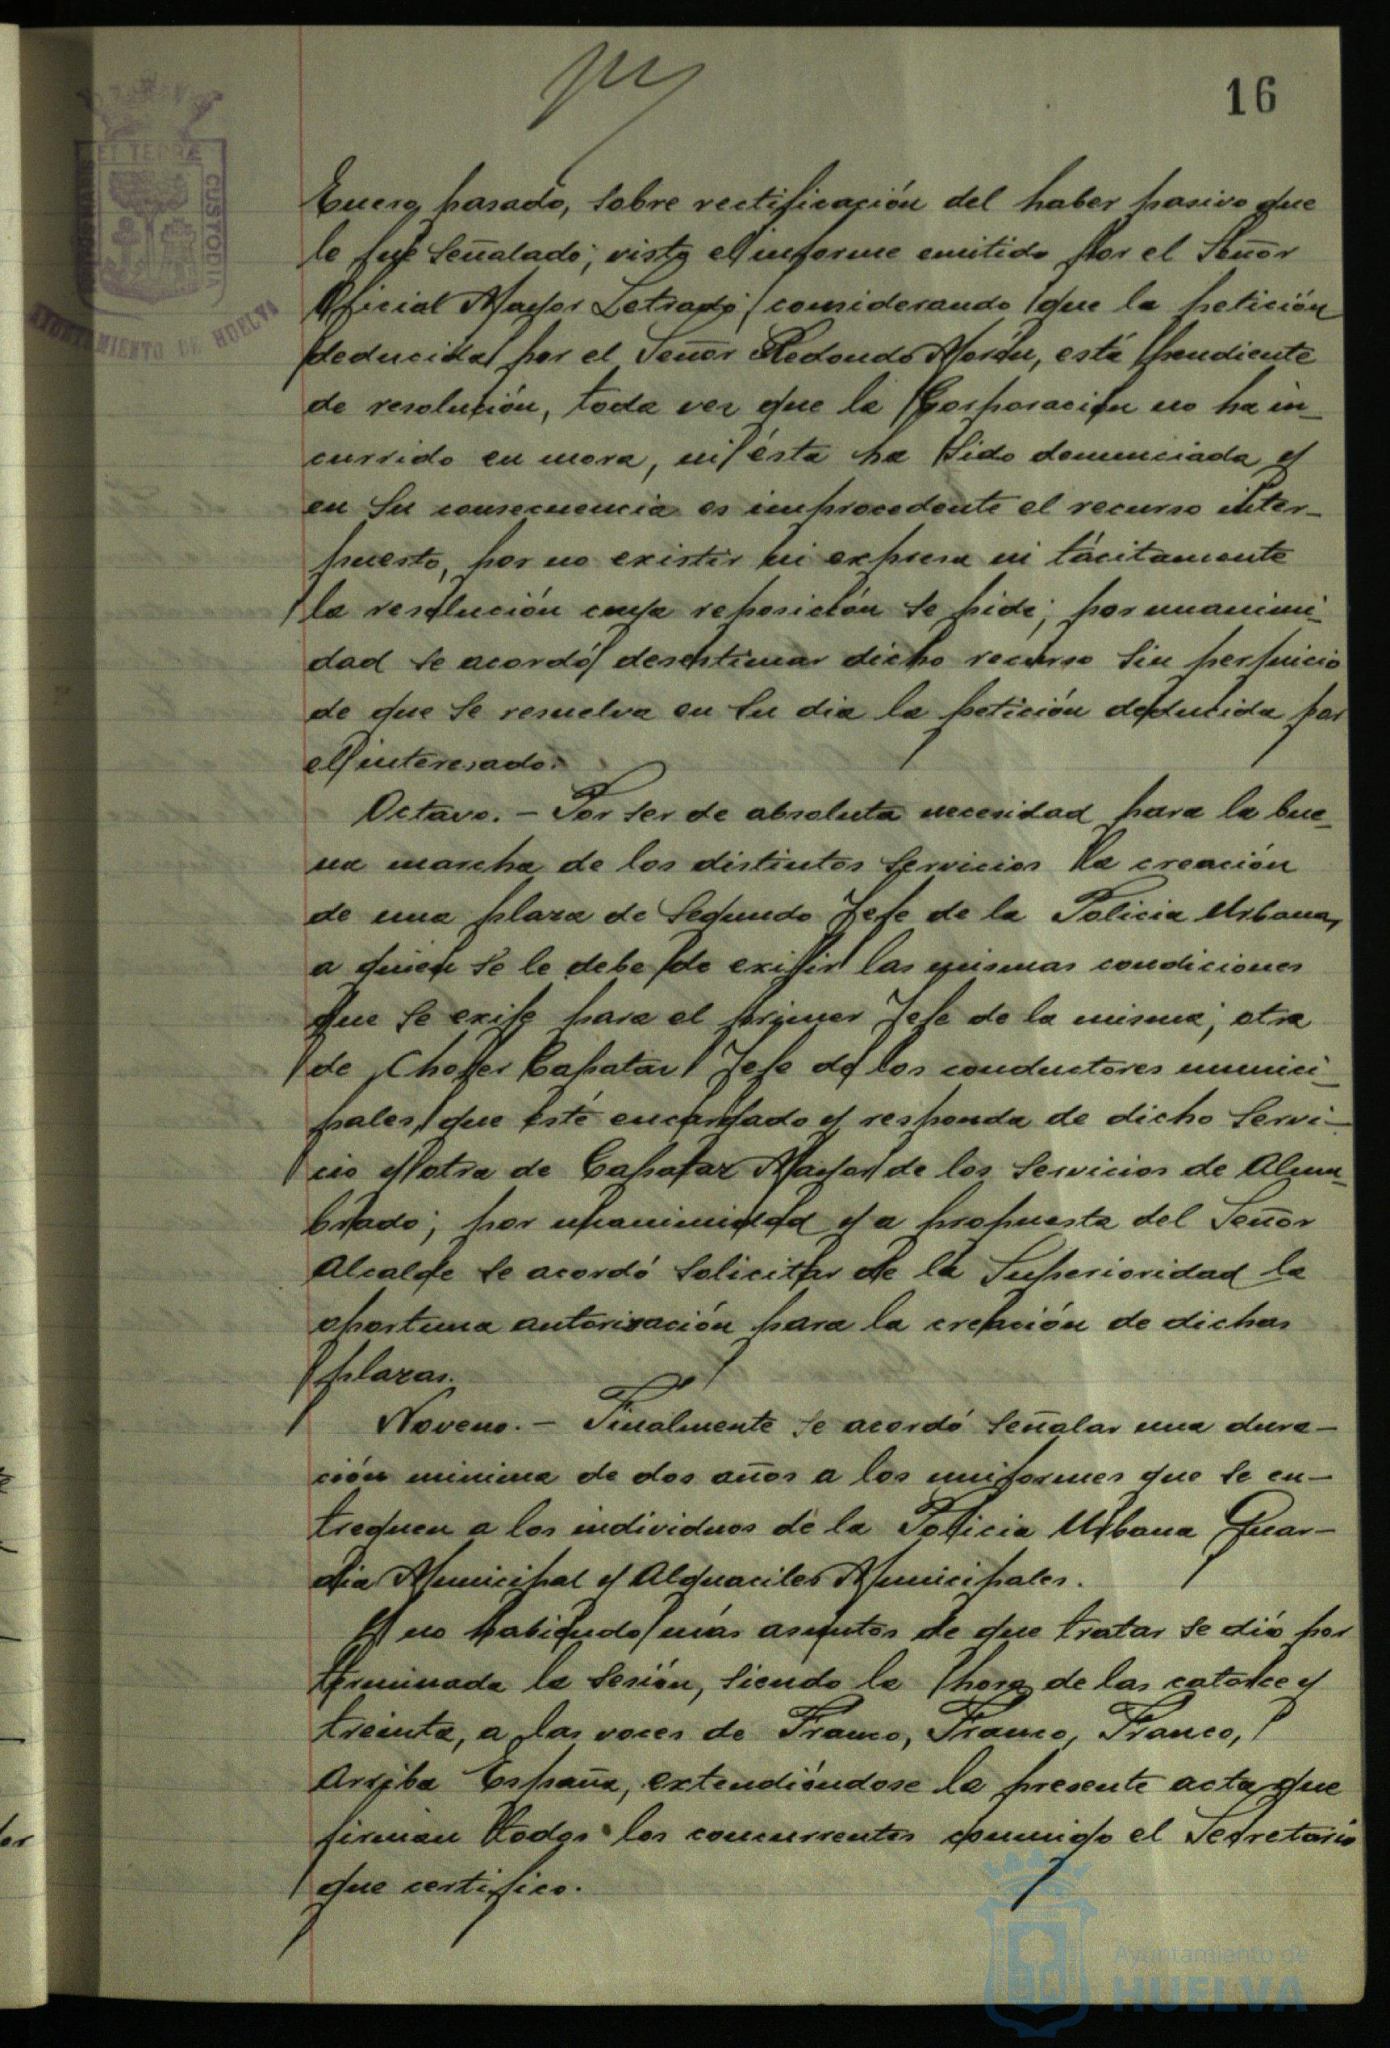 16
Enero pasado, sobre rectificación del haber pasivo que
le fué señalado; visto el informe emitido por el Señor
Oficial Mayor Letrado; considerando que la petición
deducida por el Señor Redondo Morón, está pendiente
de resolución, toda vez que la Corporación no ha in-
currido en mora, ni ésta ha sido denunciada y
en su consecuencia es improcedente el recurso inter-
puesto, por no existir ni expresa ni tácitamente
la resolución cuya reposición se pide; por unanimi-
dad se acordó desestimar dicho recurso sin perjuicio
de que se resuelva en su dia la petición deducida por
el interesado.
Octavo.- Por ser de absoluta necesidad para la bue-
na marcha de los distintos servicios la creación
de una plaza de Segundo Jefe de la Policia Urbana,
a quien se le debe de exigir las mismas condiciones
que se exige para el primer Jefe de la misma; otra
de Chofer Capataz Jefe de los conductores munici-
pales, que esté encargado y responda de dicho servi-
cio y otra de Capataz Mayor de los Servicios de Alum-
brado; por unanimidad y a propuesta del Señor
Alcalde se acordó solicitar de la Superioridad la
oportuna autorización para la creación de dichas
plazas.
Noveno.- Finalmente se acordó señalar una dura-
ción minima de dos años a los uniformes que se en-
treguen a los individuos de la Policia Urbana Guar-
dia Municipal y Alguaciles Municipales.
Y no habiendo más asuntos de que tratar se dió por
terminada la sesión, siendo la hora de las catorce y
treinta, a las voces de Franco, Franco, Franco,
Arriba España, extendiéndose la presente acta que
firman todos los concurrentes conmigo el Secretario
que certifico.
ET TERRÆ CUSTODIA
AYUNTAMIENTO DE HUELVA
Ayuntamiento de
HUELVA